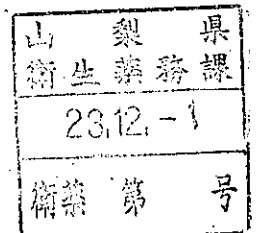 山梨県
衛生薬務課
23.12.-1
衛薬第 号